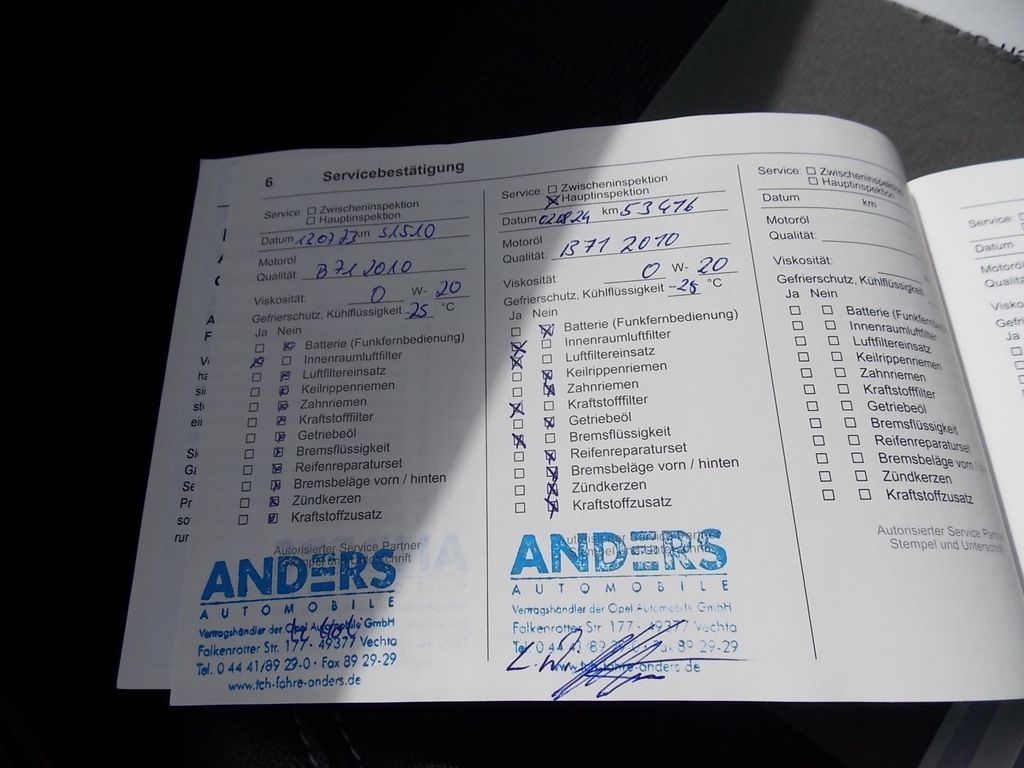 6 Servicebestätigung
Service: Zwischeninspektion
Hauptinspektion
Datum 12.07.23 km 51510
Motoröl
Qualität: B71 2010
Viskosität: 0 W- 20
Gefrierschutz, Kühlflüssigkeit -25 °C
Ja Nein
Batterie (Funkfernbedienung)
Innenraumluftfilter
Luftfiltereinsatz
Keilrippenriemen
Zahnriemen
Kraftstofffilter
Getriebeöl
Bremsflüssigkeit
Reifenreparaturset
Bremsbeläge vorn / hinten
Zündkerzen
Kraftstoffzusatz
Autorisierter Service Partner
Stempel und Unterschrift
ANDERS
AUTOMOBILE
Vertragshändler der Opel Automobile GmbH
Falkenrotter Str. 177 · 49377 Vechta
Tel. 0 44 41/89 29-0 · Fax 89 29-29
www.ich-fahre-anders.de
Service: Zwischeninspektion
Hauptinspektion
Datum 02.08.24 km 53476
Motoröl
Qualität: B71 2010
Viskosität: 0 W- 20
Gefrierschutz, Kühlflüssigkeit -25 °C
Ja Nein
Batterie (Funkfernbedienung)
Innenraumluftfilter
Luftfiltereinsatz
Keilrippenriemen
Zahnriemen
Kraftstofffilter
Getriebeöl
Bremsflüssigkeit
Reifenreparaturset
Bremsbeläge vorn / hinten
Zündkerzen
Kraftstoffzusatz
ANDERS
AUTOMOBILE
Vertragshändler der Opel Automobile GmbH
Falkenrotter Str. 177 · 49377 Vechta
Tel. 0 44 41/89 29-0 · Fax 89 29-29
www.ich-fahre-anders.de
Service: Zwischeninspektion
Hauptinspektion
Datum km
Motoröl
Qualität:
Viskosität:
Gefrierschutz, Kühlflüssigkeit
Ja Nein
Batterie (Funkfernbed
Innenraumluftfilter
Luftfiltereinsatz
Keilrippenriemen
Zahnriemen
Kraftstofffilter
Getriebeöl
Bremsflüssigkeit
Reifenreparaturset
Bremsbeläge vorn
Zündkerzen
Kraftstoffzusatz
Autorisierter Service Partn
Stempel und Unterschr
Service:
Datum
Motoröl
Qualitä
Visko
Gefri
Ja